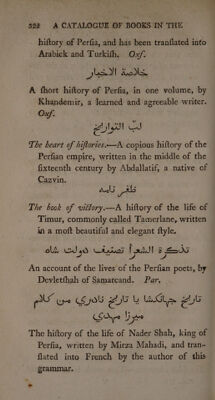 322 A CATALOGUE OF BOOKS IN THE
hiſtory of Perſia, and has been tranſlated into
Arabick and Turkiſh. Oxf.
خلاصة الاخبار
A ſhort hiſtory of Perſia, in one volume, by
Khandemir, a learned and agreeable writer.
Oxf.
لب التواريخ
The heart of hiſtories.—A copious hiſtory of the
Perſian empire, written in the middle of the
ſixteenth century by Abdallatif, a native of
Cazvin.
ظفر نامه
The book of victory.—A hiſtory of the life of
Timur, commonly called Tamerlane, written
in a moſt beautiful and elegant ſtyle.
تذكرة الشعرا تصنيف دولت شاه
An account of the lives of the Perſian poets, by
Devletſhah of Samarcand. Par.
تاريخ جهانكشا يا تاريخ نادري من كلام
ميرزا مهدي
The hiſtory of the life of Nader Shah, king of
Perſia, written by Mirza Mahadi, and tran-
ſlated into French by the author of this
grammar.